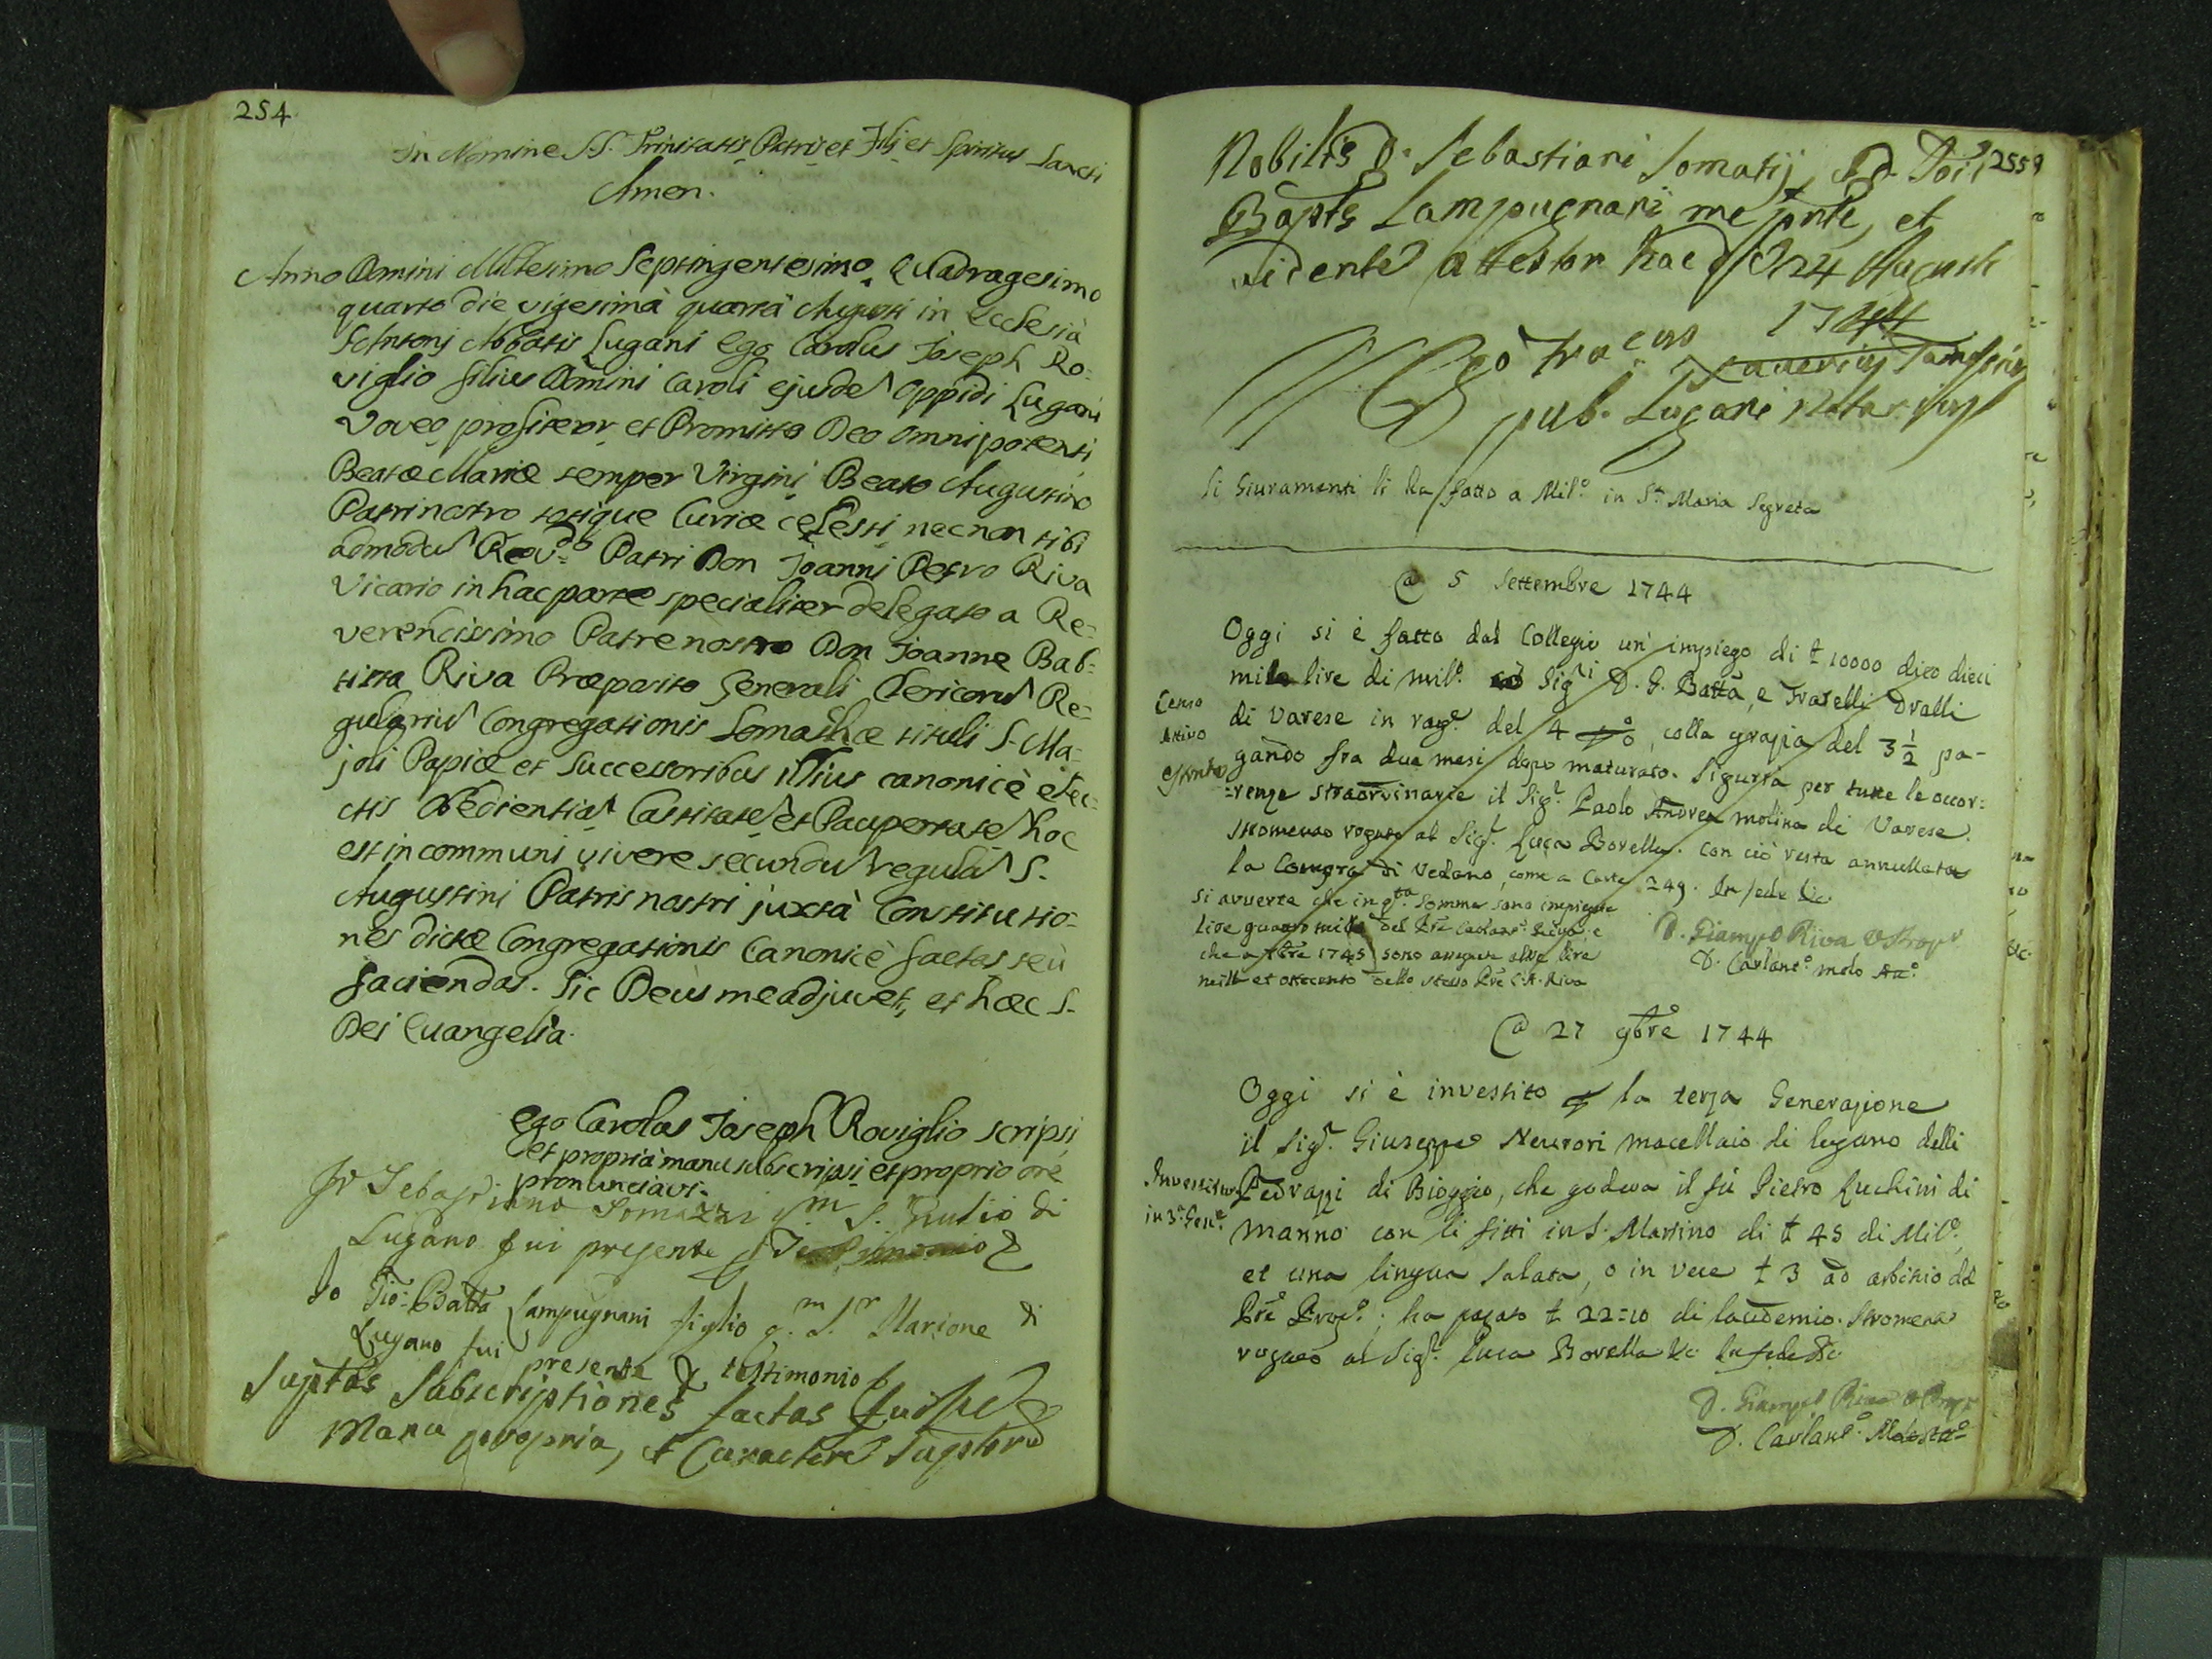 254
In Nomine S.S. Trinitatis Patris et Filij et Spiritus Sancti
Amen.
Anno Domini Millesimo Septingentesimo Quadragesimo
quarto die vigesimà quartà Augusti in Ecclesià
S. Antonj Abbatis Lugani Ego Carolus Joseph Ro-
viglio filius Domini Caroli ejusdē oppidi Lugani
Voveo profiteor et Promitto Deo omnipotenti
Beatæ Mariæ semper Virgini Beato Augustino
Patri nostro totique Curiæ celesti necnon tibi
admodū Rev.do Patri Don Joanni Petro Riva
Vicario in hac parte specialiter delegato a Re-
verendissimo Patre nostro Don Joanne Bab-
tista Riva Præposito Generali Clericorū Re-
gulariū Congregationis Somaschæ tituli S. Ma-
joli Papiæ et Successoribus illius canonicè elec-
ctis obedientiā Castitatē et Paupertatē hoc
est in communi vivere secundū regulā S.
Augustini Patris nostri juxtà Constitutio-
nes dictæ Congregationis Canonicè factas seù
faciendas. Sic Deùs me adjuvet, et hæc S.
Dei Evangelia.
Ego Carolus Joseph Roviglio scripsi,
et proprià manu subscripsi et proprio ore
pronunciavi.
Sebastiano Somazzi S. Giulio di
Lugano fui presente
Io Gio: Batta Lampugnani figlio q.m S.r Marione di
Lugano fui presente & testimonio
Supttas Subscriptiones factas fuisse
Manu propria, et Caractere Suptorū
255
Nobilis D. Sebastiani Somatij, et D. Jois
Baptæ Lampugnani me pnte, et
vidente attestor hac die 24 Augusti
1744
Ego Fra.cus Xaverius
pub. Lugani Notar.
Li Giuramenti li ha fatto a Mil.o in S.ta Maria Segreta
@ 5 Settembre 1744
Oggi si è fatto dal Collegio un' impiego di ₤ 10000 dico dieci
mila lire di mil.o Sig.ri D. G. Batta, e Fratelli Oralli
Censo
Attivo
di Varese in rag.e del 4 , colla grazia del 3 1/2 pa-
gando fra due mesi dopo maturato. Sigurtà per tutte le occor-
-renze straordinarie il Sig.r Paolo Andrea Molina di Varese.
Stromento rogato al Sig.r Luca Borella. con ciò resta annullata
la Compra di Vedano, come a Carte 249. In fede &c.
si avverte che in q.ta somma sono impiegate
lire quattro mila del Pre Carlant.o Riva, e
che a 1745 sono altre lire
mille et ottocento dello stesso Pre C. A. Riva
D. Giampo Riva Prop.to
D. Carlant.o Molo Att.o
@ 27 9bre 1744
Oggi si è investito p la terza Generazione
il Sig.r Giuseppe Neurori macellaio di lugano delli
Investitura
in 3.a Gen.e
Pedrazzi di Bioggio, che godeva il fù Pietro Luchini di
manno con li fitti in S. Martino di ₤ 45 di Mil.o,
et una lingua salata, o in vece ₤ 3 ad arbitrio del
Pre Prop.o; ha pagato ₤ 22=10 di laudemio. Stromento
rogato al Sig.r Luca Borella &c. In fede &c.
D. Giampo Riva
D. Carlant.o Molo Att.o